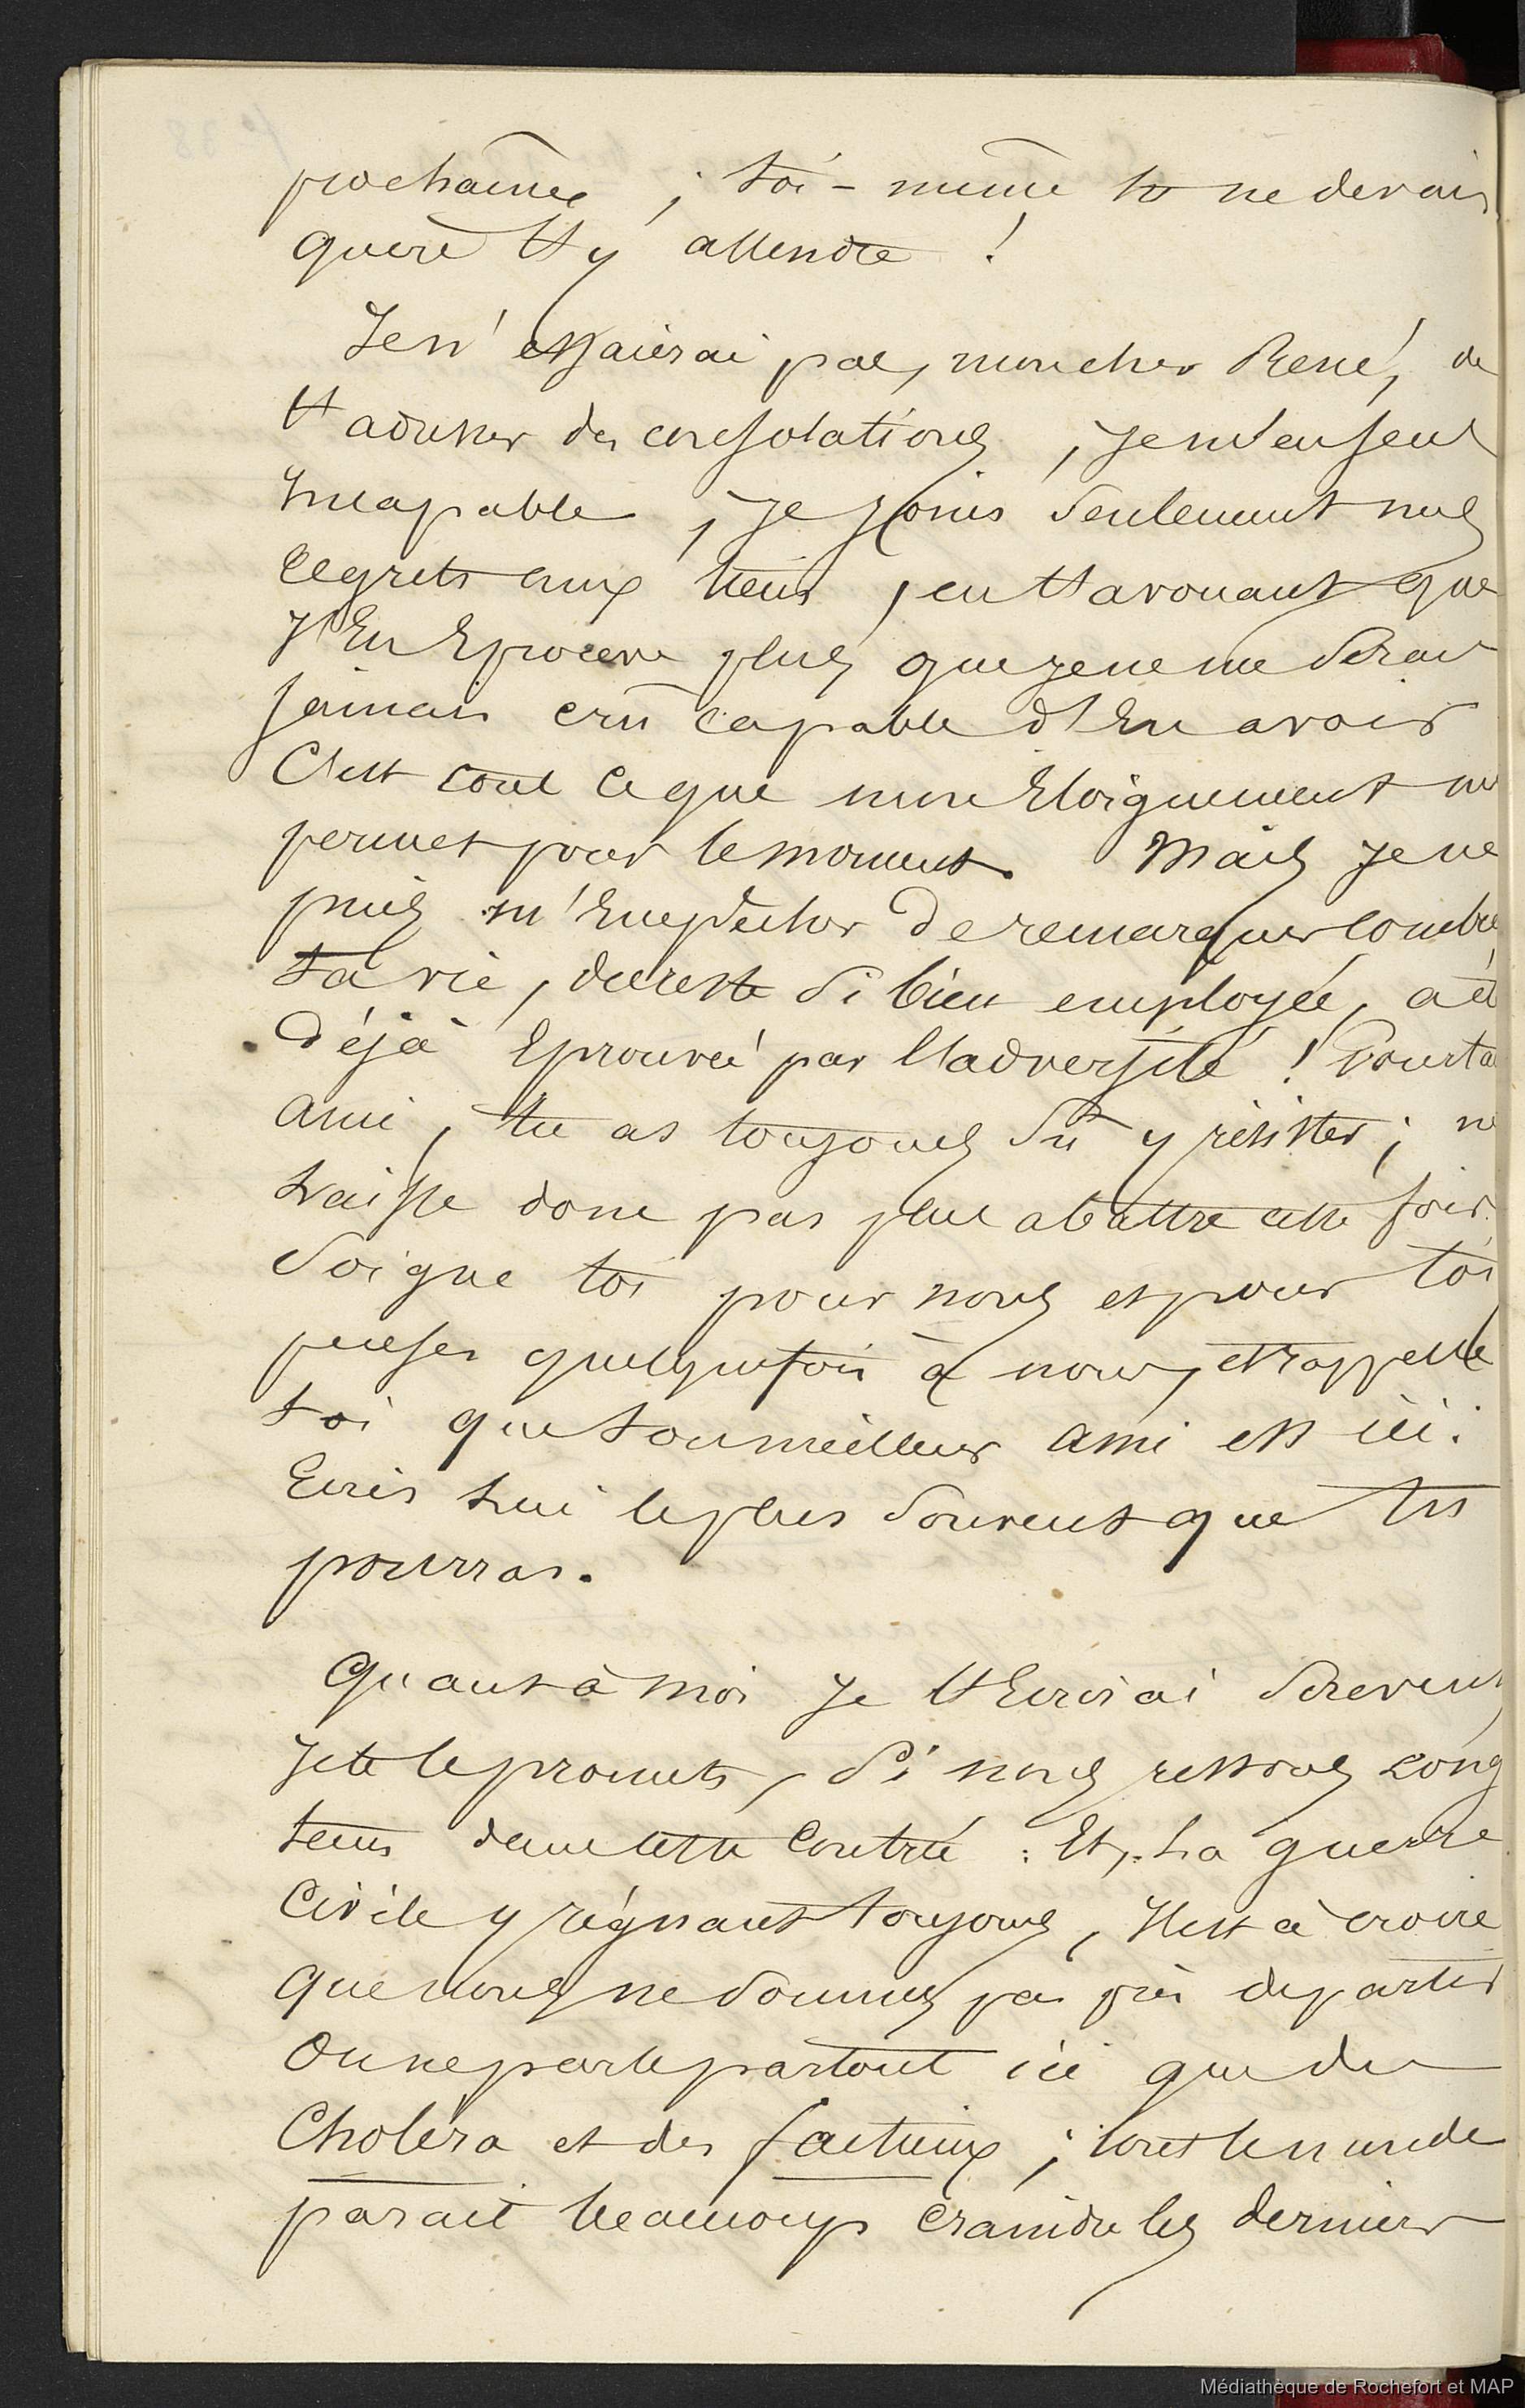 prochaine ; toi-même tu ne devais
guère t'y attendre !
Je n'essaierai pas, mon cher René, de
t'adresser des consolations, je m'en sens
Incapable, je joins seulement mes
regrets aux tiens, en t'avouant que
J'En Eprouve plus que je ne me serais
jamais crû capable d'En avoir
C'est tout ce que mon Eloignement me
permet pour le moment. Mais je ne
puis m'Empêcher de remarquer combie
ta vie, du reste si bien employée, a ét
Déjà Eprouvée par l'adversité ! Pourta
ami, tu as toujours sû y résister ; ne
t laisse donc pas plus abattre cette fois.
Soigne toi pour nous et pour toi
penses quelquefois à nous, et rappelle
toi que ton meilleur ami est ici.
Ecris lui le plus souvent que tu
pourras.
Quant à Moi je t'Ecrirai souvent
Je te le promets, si nous restons long
tems dans cette Contrée : Et, La guerre
Civile y régnant toujours, Il est à croire
que nous ne sommes pas près de partir
On ne parle partout ici que du
Choléra et des factieux ; tout le monde
parait beaucoup craindre les derniers
Médiathèque de Rochefort et MAP